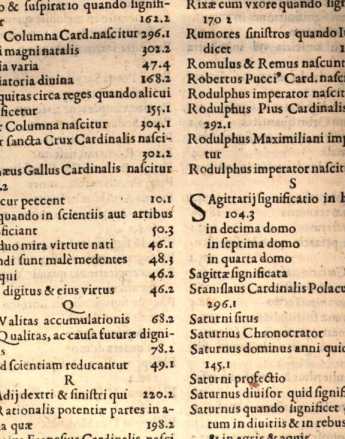 & suspiratio quando signifi-
162.2
Columna Card.nascitur 296.1
magni natalis 302.2
varia 47.4
diuina 168.2
circa reges quando alicui
155.1
Columna nascitur 304.1
sancta Crux Cardinalis nasci-
302.2
Gallus Cardinalis nascitur
.2
cur peccent 10.1
quando in scientiis aut artibus
50.3
duo mira virtute nati 46.1
sunt malè medentes 48.3
qui 46.2
digitus & eius virtus 46.2
Q
accumulationis 68.2
Qualitas, ac causa futuræ digni-
78.2
scientiam reducantur 49.1
R
dextri & sinistri qui 220.2
Rationalis potentiæ partes in a-
quæ 198.2
Rixæ cum vxore quando
170 2
Rumores sinistros quando
dicet
Romulus & Remus
Robertus Pucci⁹ Card.
Rodulphus imperator
Rodulphus Pius Cardinalis
292.1
Rodulphus Maximiliani
tur
Rodulphus imperator
S
Sagittarij significatio in
104.3
in decima domo
in septima domo
in quarta domo
Sagittæ significata
Stanislaus Cardinalis
296.1
Saturni situs
Saturnus Chronocrator
Saturnus dominus anni
145.1
Saturni profectio
Saturnus diuisor quid
Saturnus quando significet
tum in diuitiis & in